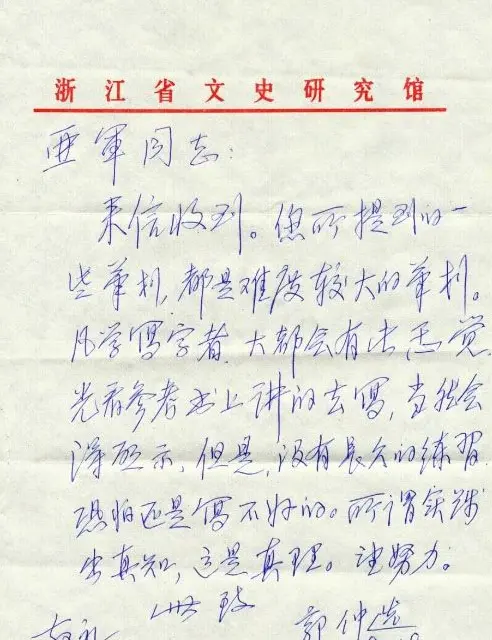 浙江省文史研究馆
亚軍同志：
来信收到。您所提到的一
些筆划，都是难度较大的筆划。
凡学写字者，大都会有此感觉。
光看参考书上讲的去写，当然会
得启示，但是，没有長久的练习
恐怕还是写不好的。所谓实践
出真知，这是真理。望努力。
此致
敬礼 郭仲选